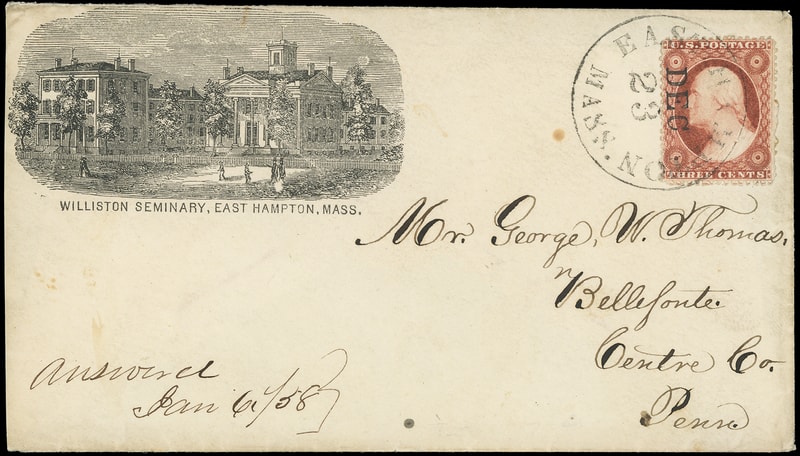 WILLISTON SEMINARY, EAST HAMPTON, MASS.
EAST HAMPTON
MASS.
DEC
23
U.S. POSTAGE
THREE CENTS
Mr. George, W. Thomas,
Bellefonte.
Centre Co.
Penn
Answered
Jan 6/58